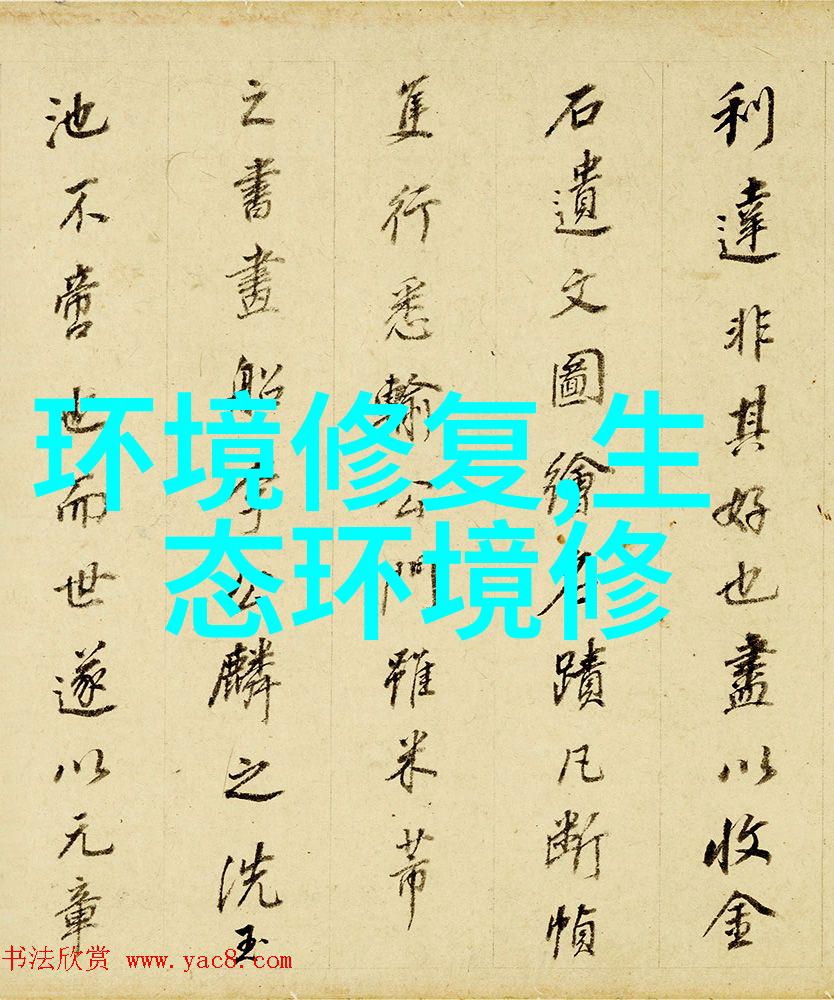 利達非其好也盡以收金
石遺文圖繪名蹟凡斷幀
隻行悉輸公門雖米芾
之書畫船李公麟之洗玉
池不啻也而世遂以元章
环境修复,生
态环境修
书法欣赏 www.yac8.com